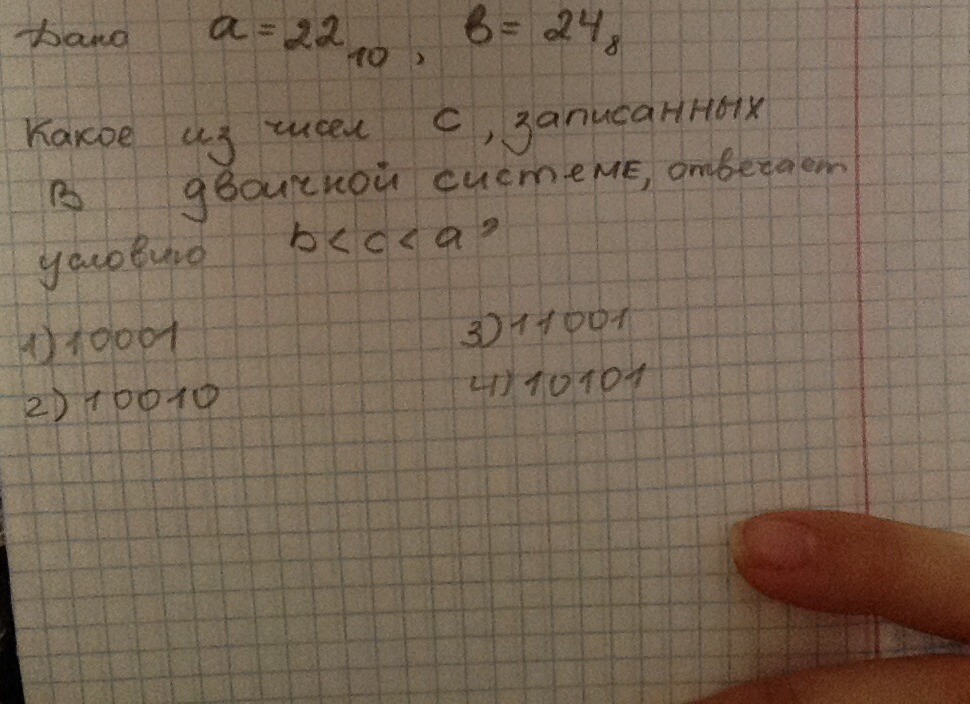 Дано a = 22₁₀, b = 24₈
Какое из чисел C, записанных
в двоичной системе, отвечает
условию b < c < a?
1) 10001 3) 11001
2) 10010 4) 10101